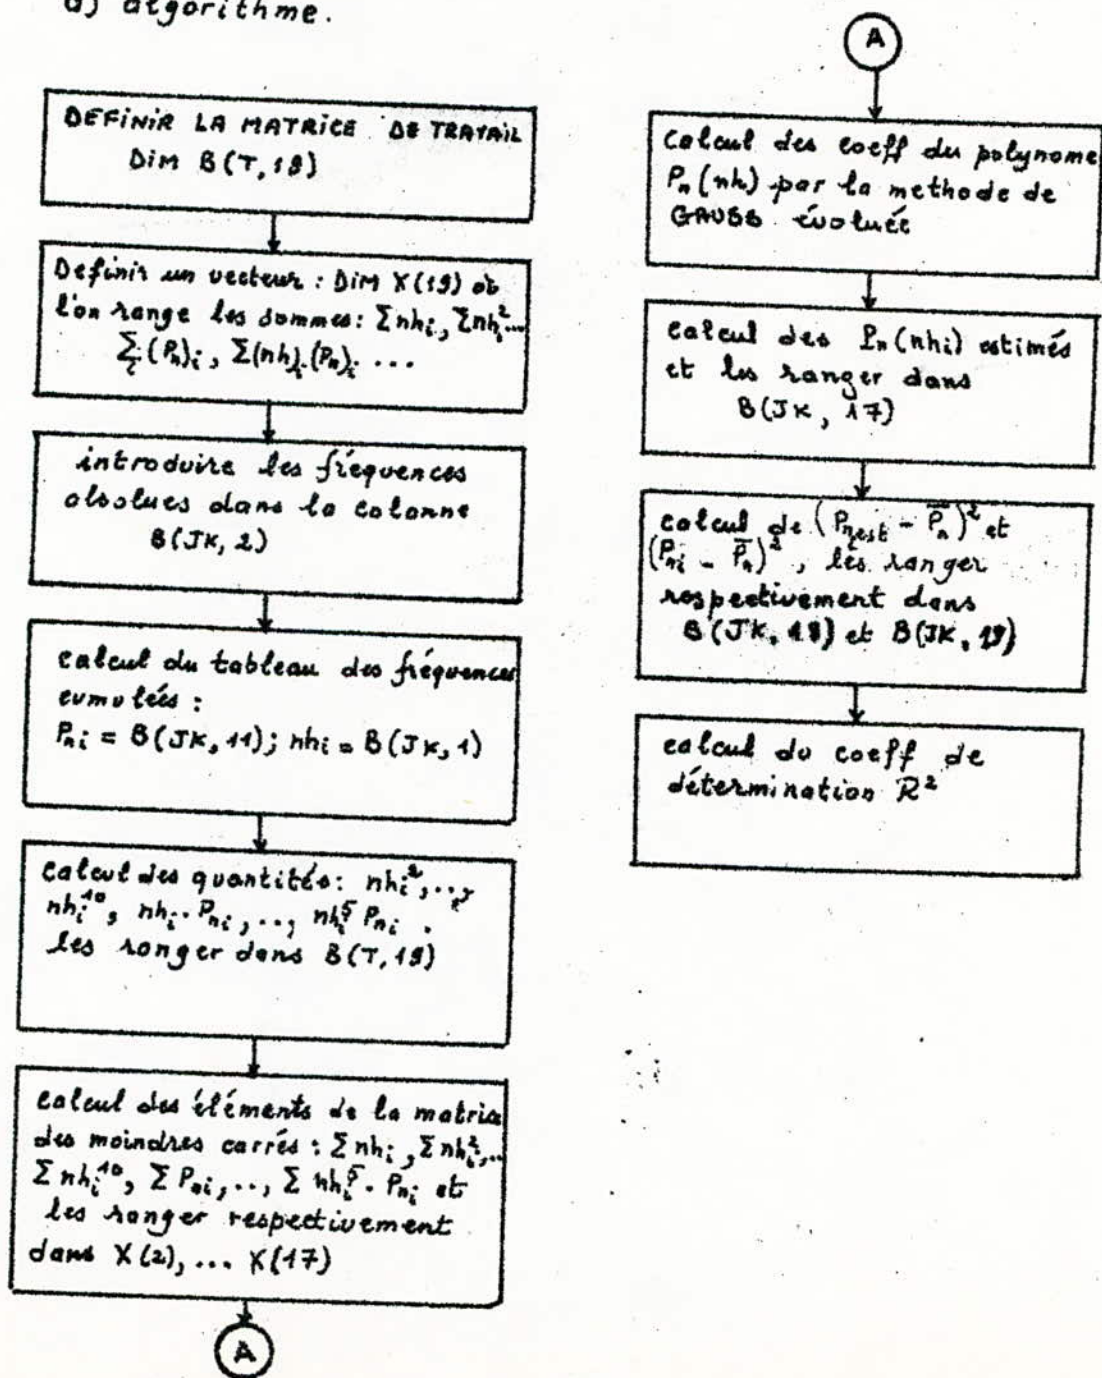 a) algorithme.
DEFINIR LA MATRICE DE TRAVAIL
Dim B(T,19)
Definir un vecteur : Dim X(19) où
l'on range les sommes: Σnhi, Σnhi²...
Σi(Pn)i, Σ(nh)i.(Pn)i ...
introduire les fréquences
absolues dans la colonne
B(JK, 2)
calcul du tableau des fréquences
cumulées :
Pni = B(JK, 11); nhi = B(JK, 1)
calcul des quantités: nhi²,..,
nhi¹⁰, nhi.Pni,.., nhi⁵Pni .
les ranger dans B(T,19)
calcul des éléments de la matrice
des moindres carrés : Σnhi, Σnhi²,..
Σnhi¹⁰, ΣPni,.., Σnhi⁵.Pni et
les ranger respectivement
dans X(2),... X(17)
A
A
calcul des coeff du polynome
Pn(nh) par la methode de
GAUSS évoluée
calcul des Pn(nhi) estimés
et les ranger dans
B(JK, 17)
calcul de (Pniest - P̄n)² et
(Pni - P̄n)², les ranger
respectivement dans
B(JK, 18) et B(JK, 19)
calcul du coeff de
détermination R²